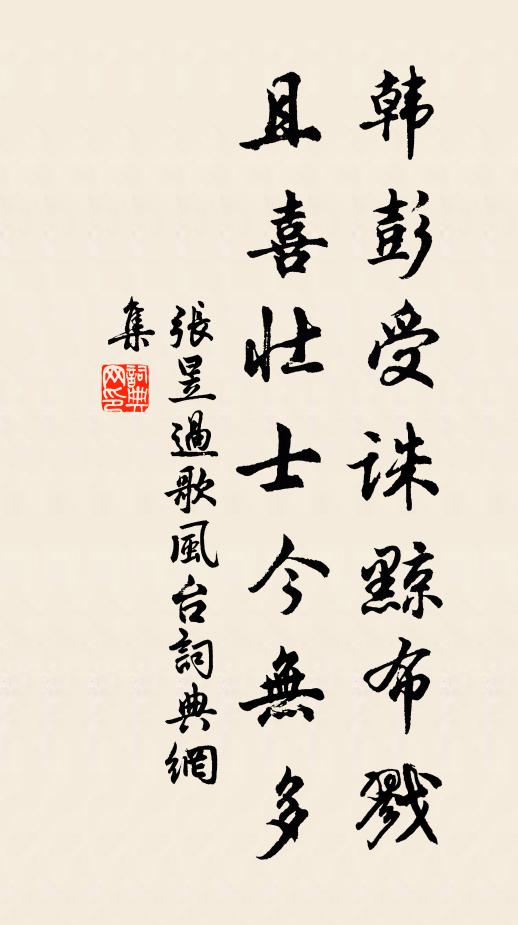 韩彭受诛黥布戮
且喜壮士今無多
張昱過歌風台詞典網
集
詞典
网印